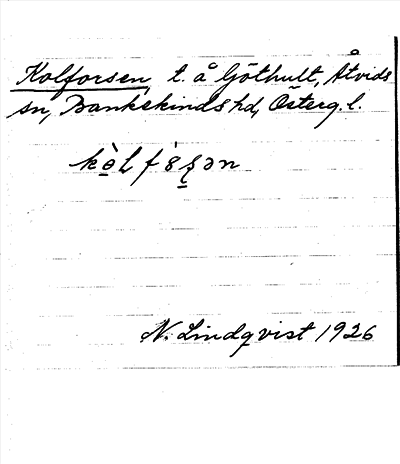 Kolforsen, t. å Göthult, Åtvids
sn, Bankekinds hd, Österg. l.
N. Lindqvist 1926